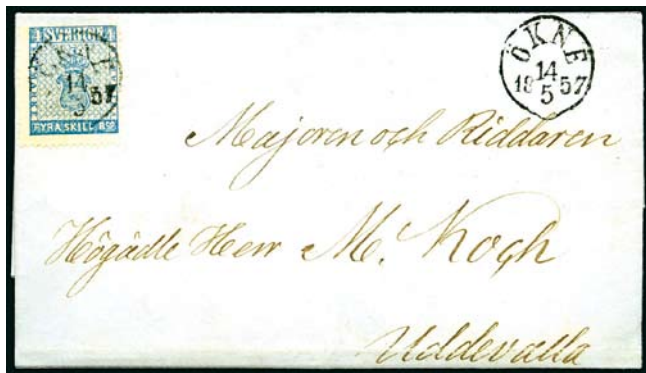 4 SVERIGE 4
ÖKNE
14
5
57
FYRA SKILL. BCO
ÖKNE
14
18 5 57
Majoren och Riddaren
Högädle Herr M. Koch
Uddevalla